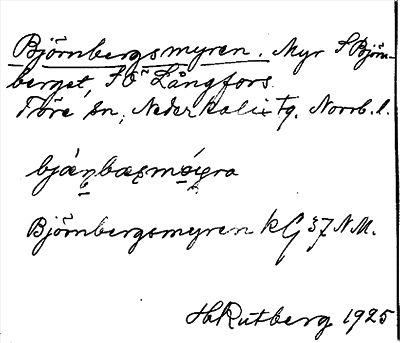 Björnbergsmyren. Myr S Björn-
berget, SO Långfors
Töre sn, Nederkalix tg. Norrb. l.
Björnbergsmyren kG 37 NM.
H. Rutberg 1925